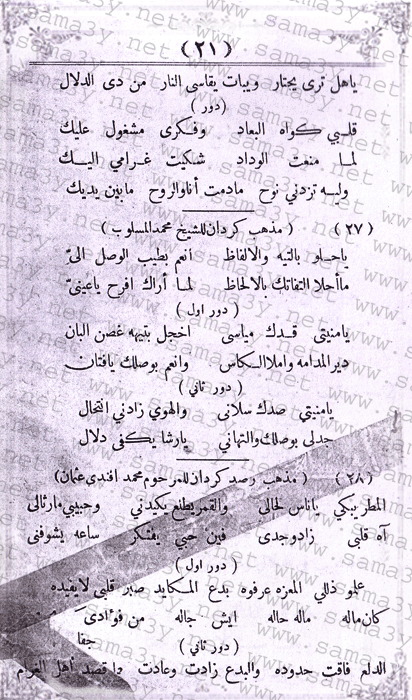 (٢١)
ياهل ترى يحتار ويبات يقاسى النار من دى الدلال
(دور)
قلبي كواه البعاد وفكرى مشغول عليك
لما منعت الوداد شكيت غرامي اليك
وليه تزدني نوح مادمت أناوالروح مابين يديك
(٢٧) (مذهب كردان للشيخ محمدالمسلوب)
ياحلو بالتيه والالفاظ انعم بطيب الوصل الىّ
ماأحلا التفاتك بالالحاظ لما أراك افرح ياعينىّ
(دور اول)
يامنيتى قدك مياسى اخجل بتيهه غصن البان
ديرالمدامه واملاالكاس وانعم بوصلك يافتان
(دور ثاني)
يامنيتي صدك سلانى والهوي زادني انتحال
جدلى بوصلك والتهاني يارشا يكفى دلال
(٢٨) (مذهب رصد كردان للمرحوم محمد افندى عثمان)
المطر يبكي ياناس لحالى والقمر يطلع يكيدني وحبيبي مارثالى
آه قلبي زادوجدى فين حبي يفتكر ساعه يشوفنى
(دور اول)
علمو ذللي المعزه عرفوه بدع المكايد صبر قلبي لايفيده
كان ماله ماله حاله ايش جاله من فوادى جفا
(دور ثاني)
الدلع فاقت حدوده والبدع زادت وعادت واقصد أهل الغرام
www.sama3y.net